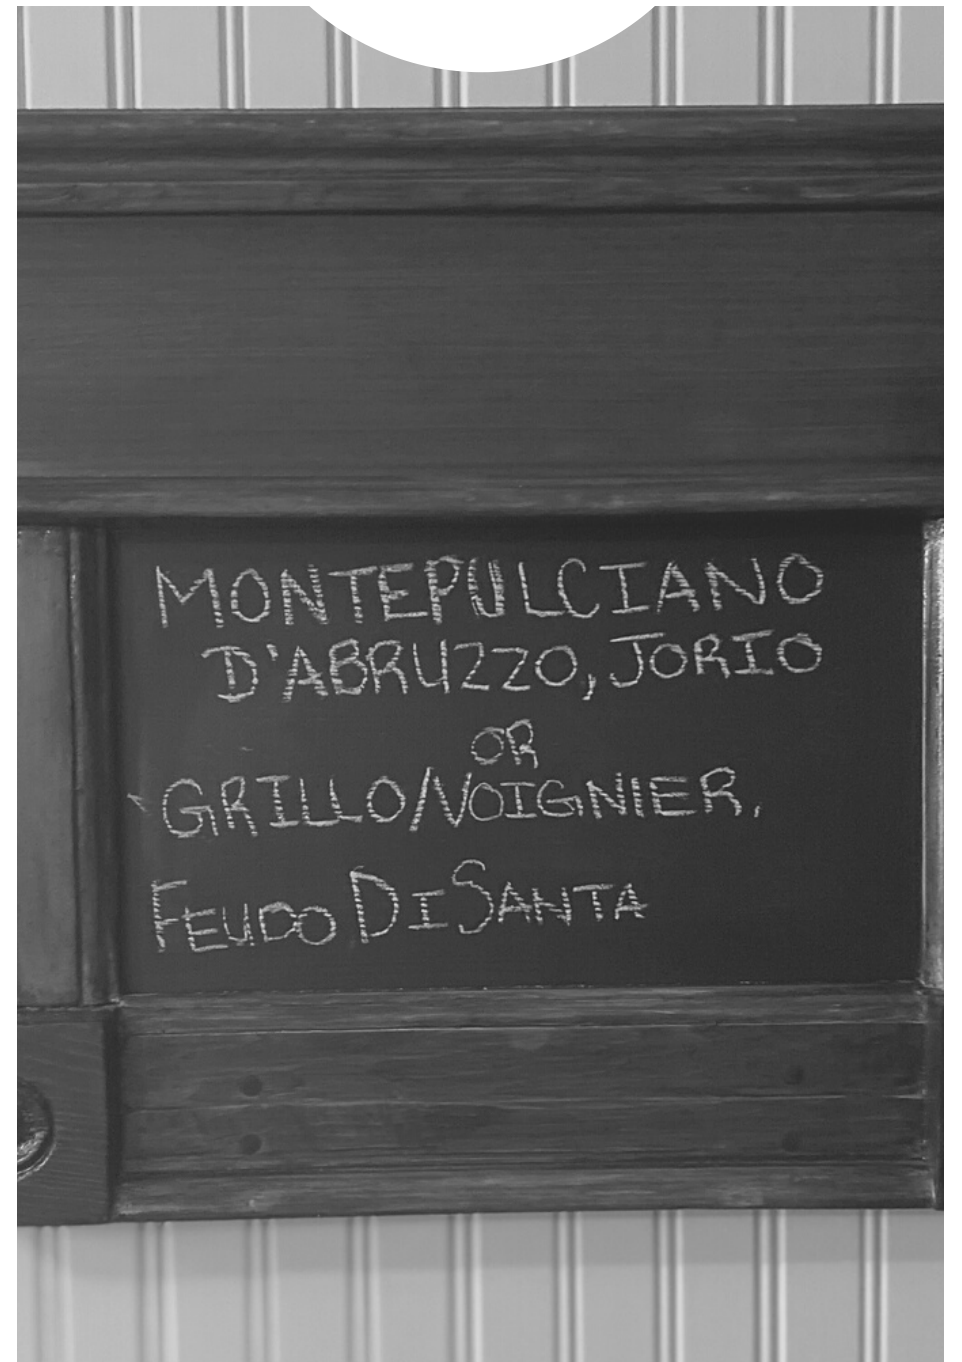 MONTEPULCIANO
D'ABRUZZO, JORIO
OR
GRILLO/VOIGNIER,
FEUDO DI SANTA